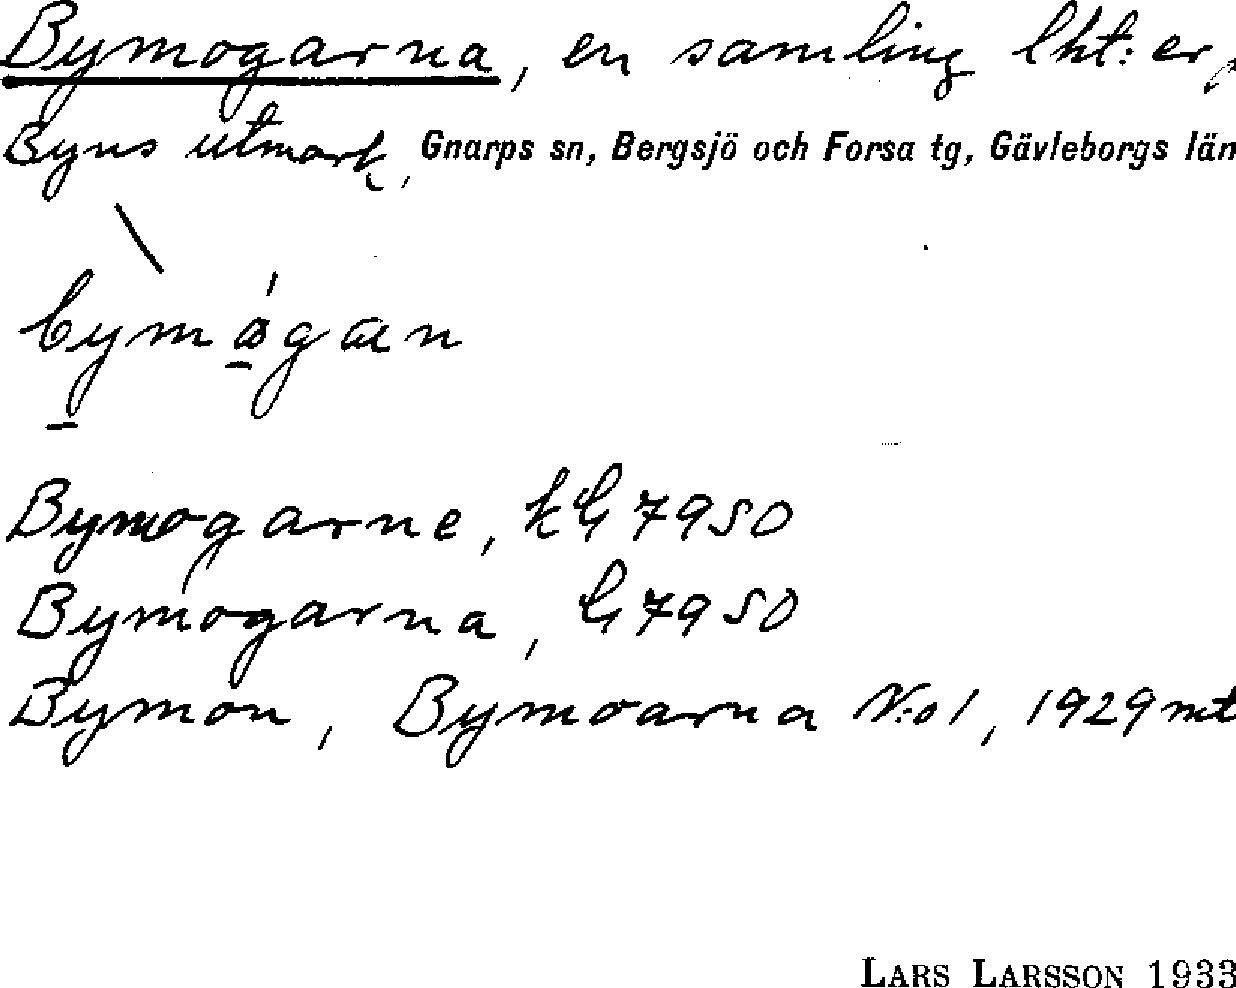 Bymogarna, en samling lht:er,
Byns utmark, Gnarps sn, Bergsjö och Forsa tg, Gävleborgs län
Bymogarne, kG 7950
Bymogarna, G 7950
Bymon, Bymoarna N:o 1, 1929 mt
LARS LARSSON 1933